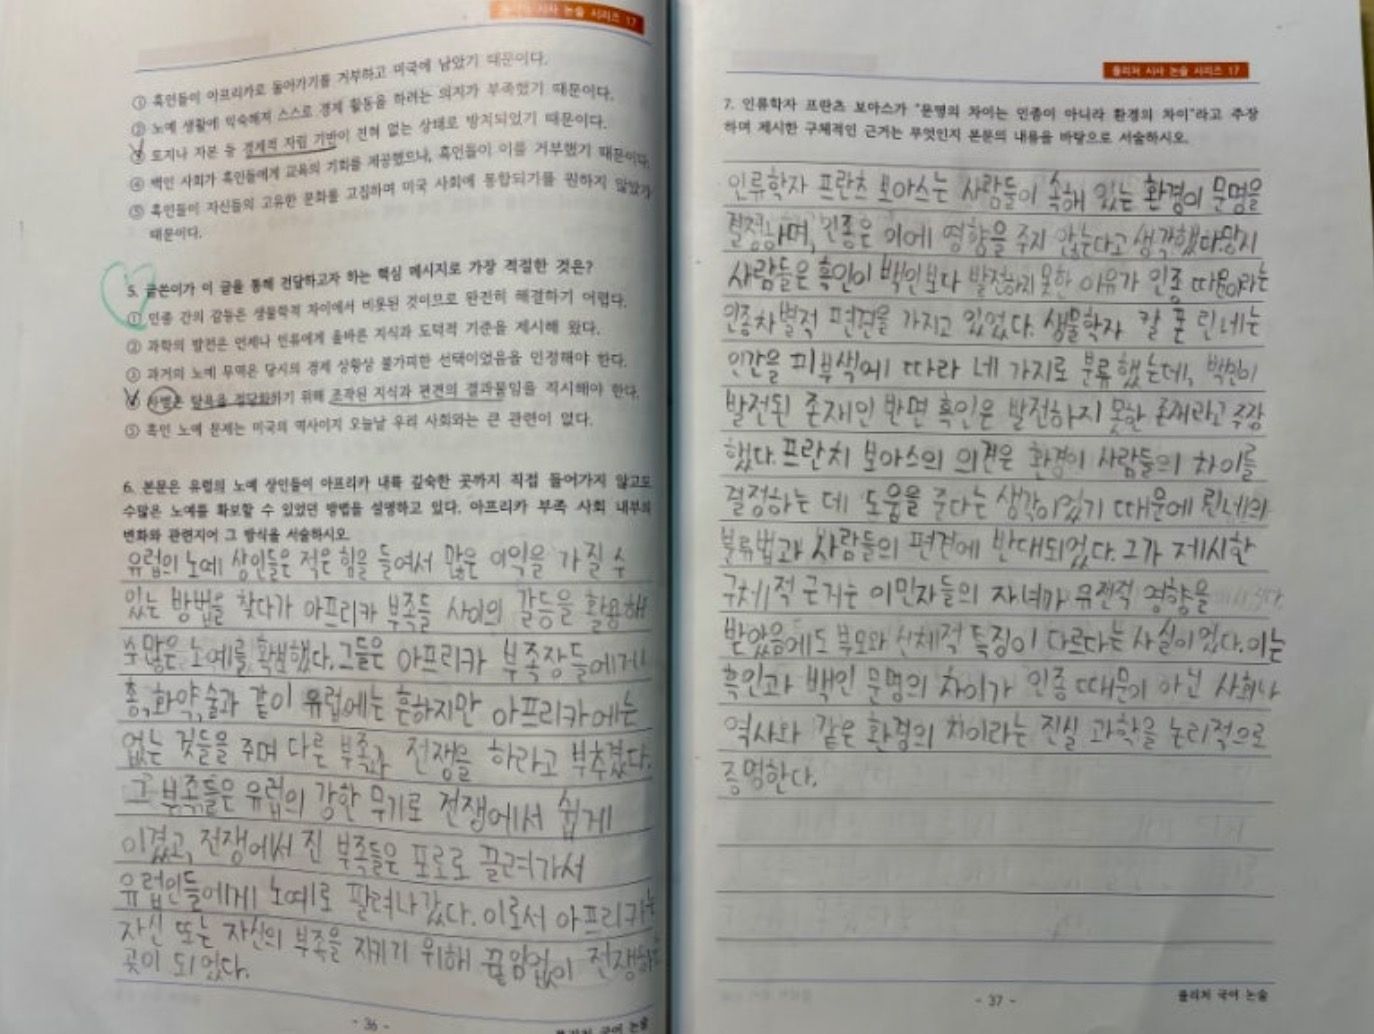 시사 논술 시리즈 17
① 흑인들이 아프리카로 돌아가기를 거부하고 미국에 남았기 때문이다.
② 노예 생활에 익숙해져 스스로 경제 활동을 하려는 의지가 부족했기 때문이다.
토지나 자본 등 경제적 자립 기반이 전혀 없는 상태로 방치되었기 때문이다.
④ 백인 사회가 흑인들에게 교육의 기회를 제공했으나, 흑인들이 이를 거부했기 때문이다.
⑤ 흑인들이 자신들의 고유한 문화를 고집하며 미국 사회에 통합되기를 원하지 않았기
때문이다.
5. 글쓴이가 이 글을 통해 전달하고자 하는 핵심 메시지로 가장 적절한 것은?
① 인종 간의 갈등은 생물학적 차이에서 비롯된 것이므로 완전히 해결하기 어렵다.
② 과학의 발전은 언제나 인류에게 올바른 지식과 도덕적 기준을 제시해 왔다.
③ 과거의 노예 무역은 당시의 경제 상황상 불가피한 선택이었음을 인정해야 한다.
④ 차별은 탐욕을 정당화하기 위해 조작된 지식과 편견의 결과물임을 직시해야 한다.
⑤ 흑인 노예 문제는 미국의 역사이지 오늘날 우리 사회와는 큰 관련이 없다.
6. 본문은 유럽의 노예 상인들이 아프리카 내륙 깊숙한 곳까지 직접 들어가지 않고도
수많은 노예를 확보할 수 있었던 방법을 설명하고 있다. 아프리카 부족 사회 내부의
변화와 관련지어 그 방식을 서술하시오.
유럽의 노예 상인들은 적은 힘을 들여서 많은 이익을 가질 수
있는 방법을 찾다가 아프리카 부족들 사이의 갈등을 활용해
수많은 노예를 확보했다. 그들은 아프리카 부족장들에게
총, 화약, 술과 같이 유럽에는 흔하지만 아프리카에는
없는 것들을 주며 다른 부족과 전쟁을 하라고 부추겼다.
그 부족들은 유럽의 강한 무기로 전쟁에서 쉽게
이겼고, 전쟁에서 진 부족들은 포로로 끌려가서
유럽인들에게 노예로 팔려나갔다. 이로서 아프리카는
자신 또는 자신의 부족을 지키기 위해 끊임없이 전쟁하는
곳이 되었다.
- 36 -
플리처 국어 논술
플리처 시사 논술 시리즈 17
7. 인류학자 프란츠 보아스가 "문명의 차이는 인종이 아니라 환경의 차이"라고 주장
하며 제시한 구체적인 근거는 무엇인지 본문의 내용을 바탕으로 서술하시오.
인류학자 프란츠 보아스는 사람들이 속해 있는 환경이 문명을
결정하며, 인종은 이에 영향을 주지 않는다고 생각했다. 당시
사람들은 흑인이 백인보다 발전하지 못한 이유가 인종 때문이라는
인종차별적 편견을 가지고 있었다. 생물학자 칼 폰 린네는
인간을 피부색에 따라 네 가지로 분류했는데, 백인이
발전된 존재인 반면 흑인은 발전하지 못한 존재라고 주장
했다. 프란치 보아스의 의견은 환경이 사람들의 차이를
결정하는 데 도움을 준다는 생각이었기 때문에 린네의
분류법과 사람들의 편견에 반대되었다. 그가 제시한
구체적 근거는 이민자들의 자녀가 유전적 영향을
받았음에도 부모와 신체적 특징이 다르다는 사실이었다. 이는
흑인과 백인 문명의 차이가 인종 때문이 아닌 사회나
역사와 같은 환경의 차이라는 진실 과학을 논리적으로
증명한다.
- 37 -
플리처 국어 논술